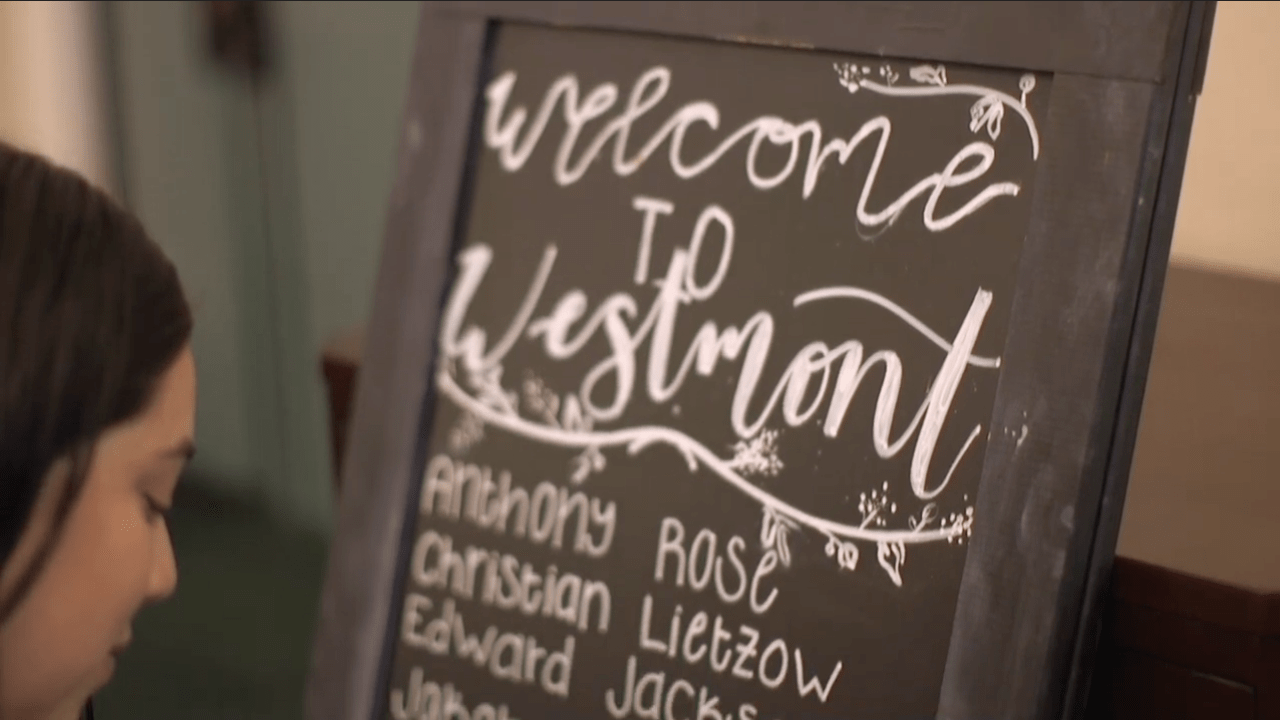 welcome
TO
Westmont
Anthony Rose
Christian Lietzow
Edward